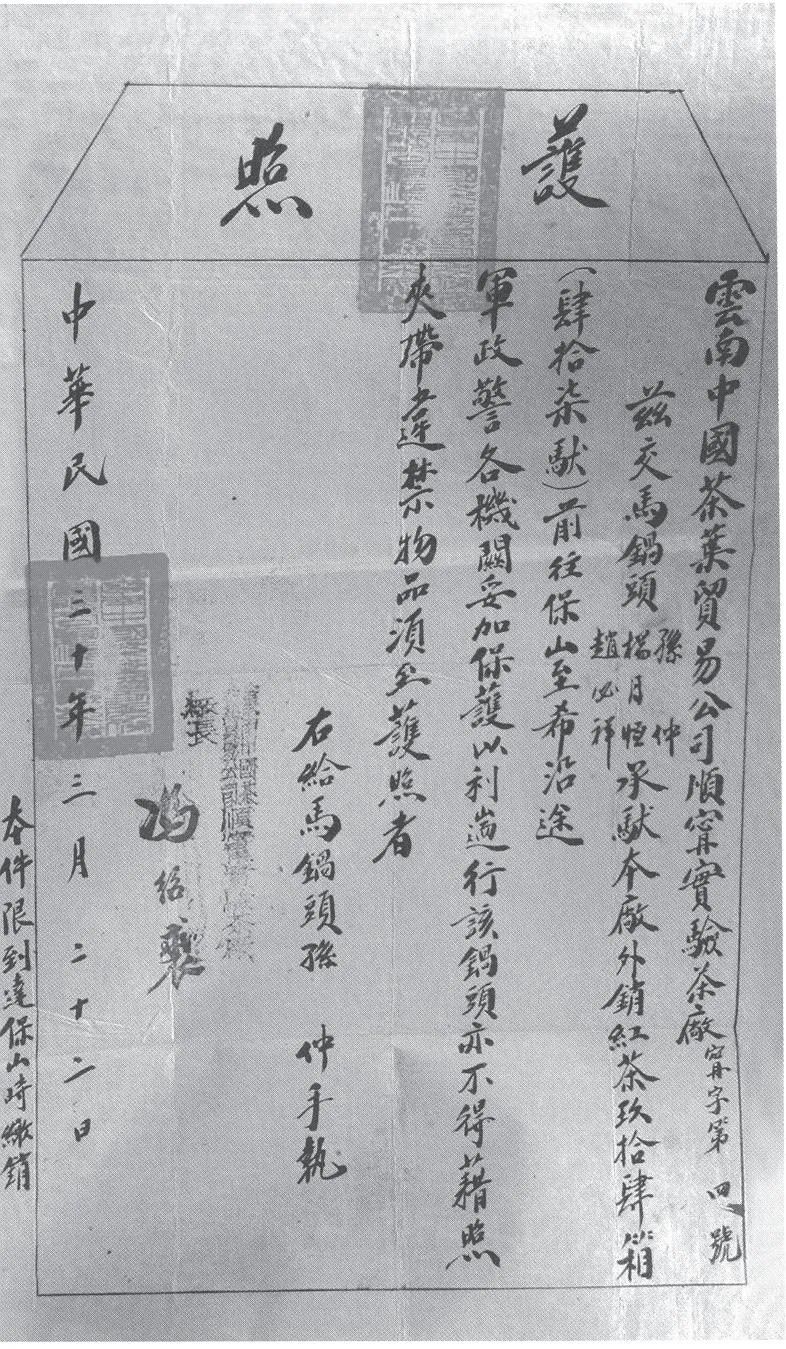 護照
雲南中國茶葉貿易公司順甯實驗茶廠甯字第四號
茲交馬鍋頭孫仲 楊月恒 趙必祥承馱本廠外銷紅茶玖拾肆箱
（肆拾柒馱）前往保山至希沿途
軍政警各機關妥加保護以利遄行該鍋頭亦不得藉照
夾帶違禁物品須至護照者
右給馬鍋頭孫仲手執
廠長
馮紹裘
中華民國三十年三月二十二日
本件限到達保山時繳銷